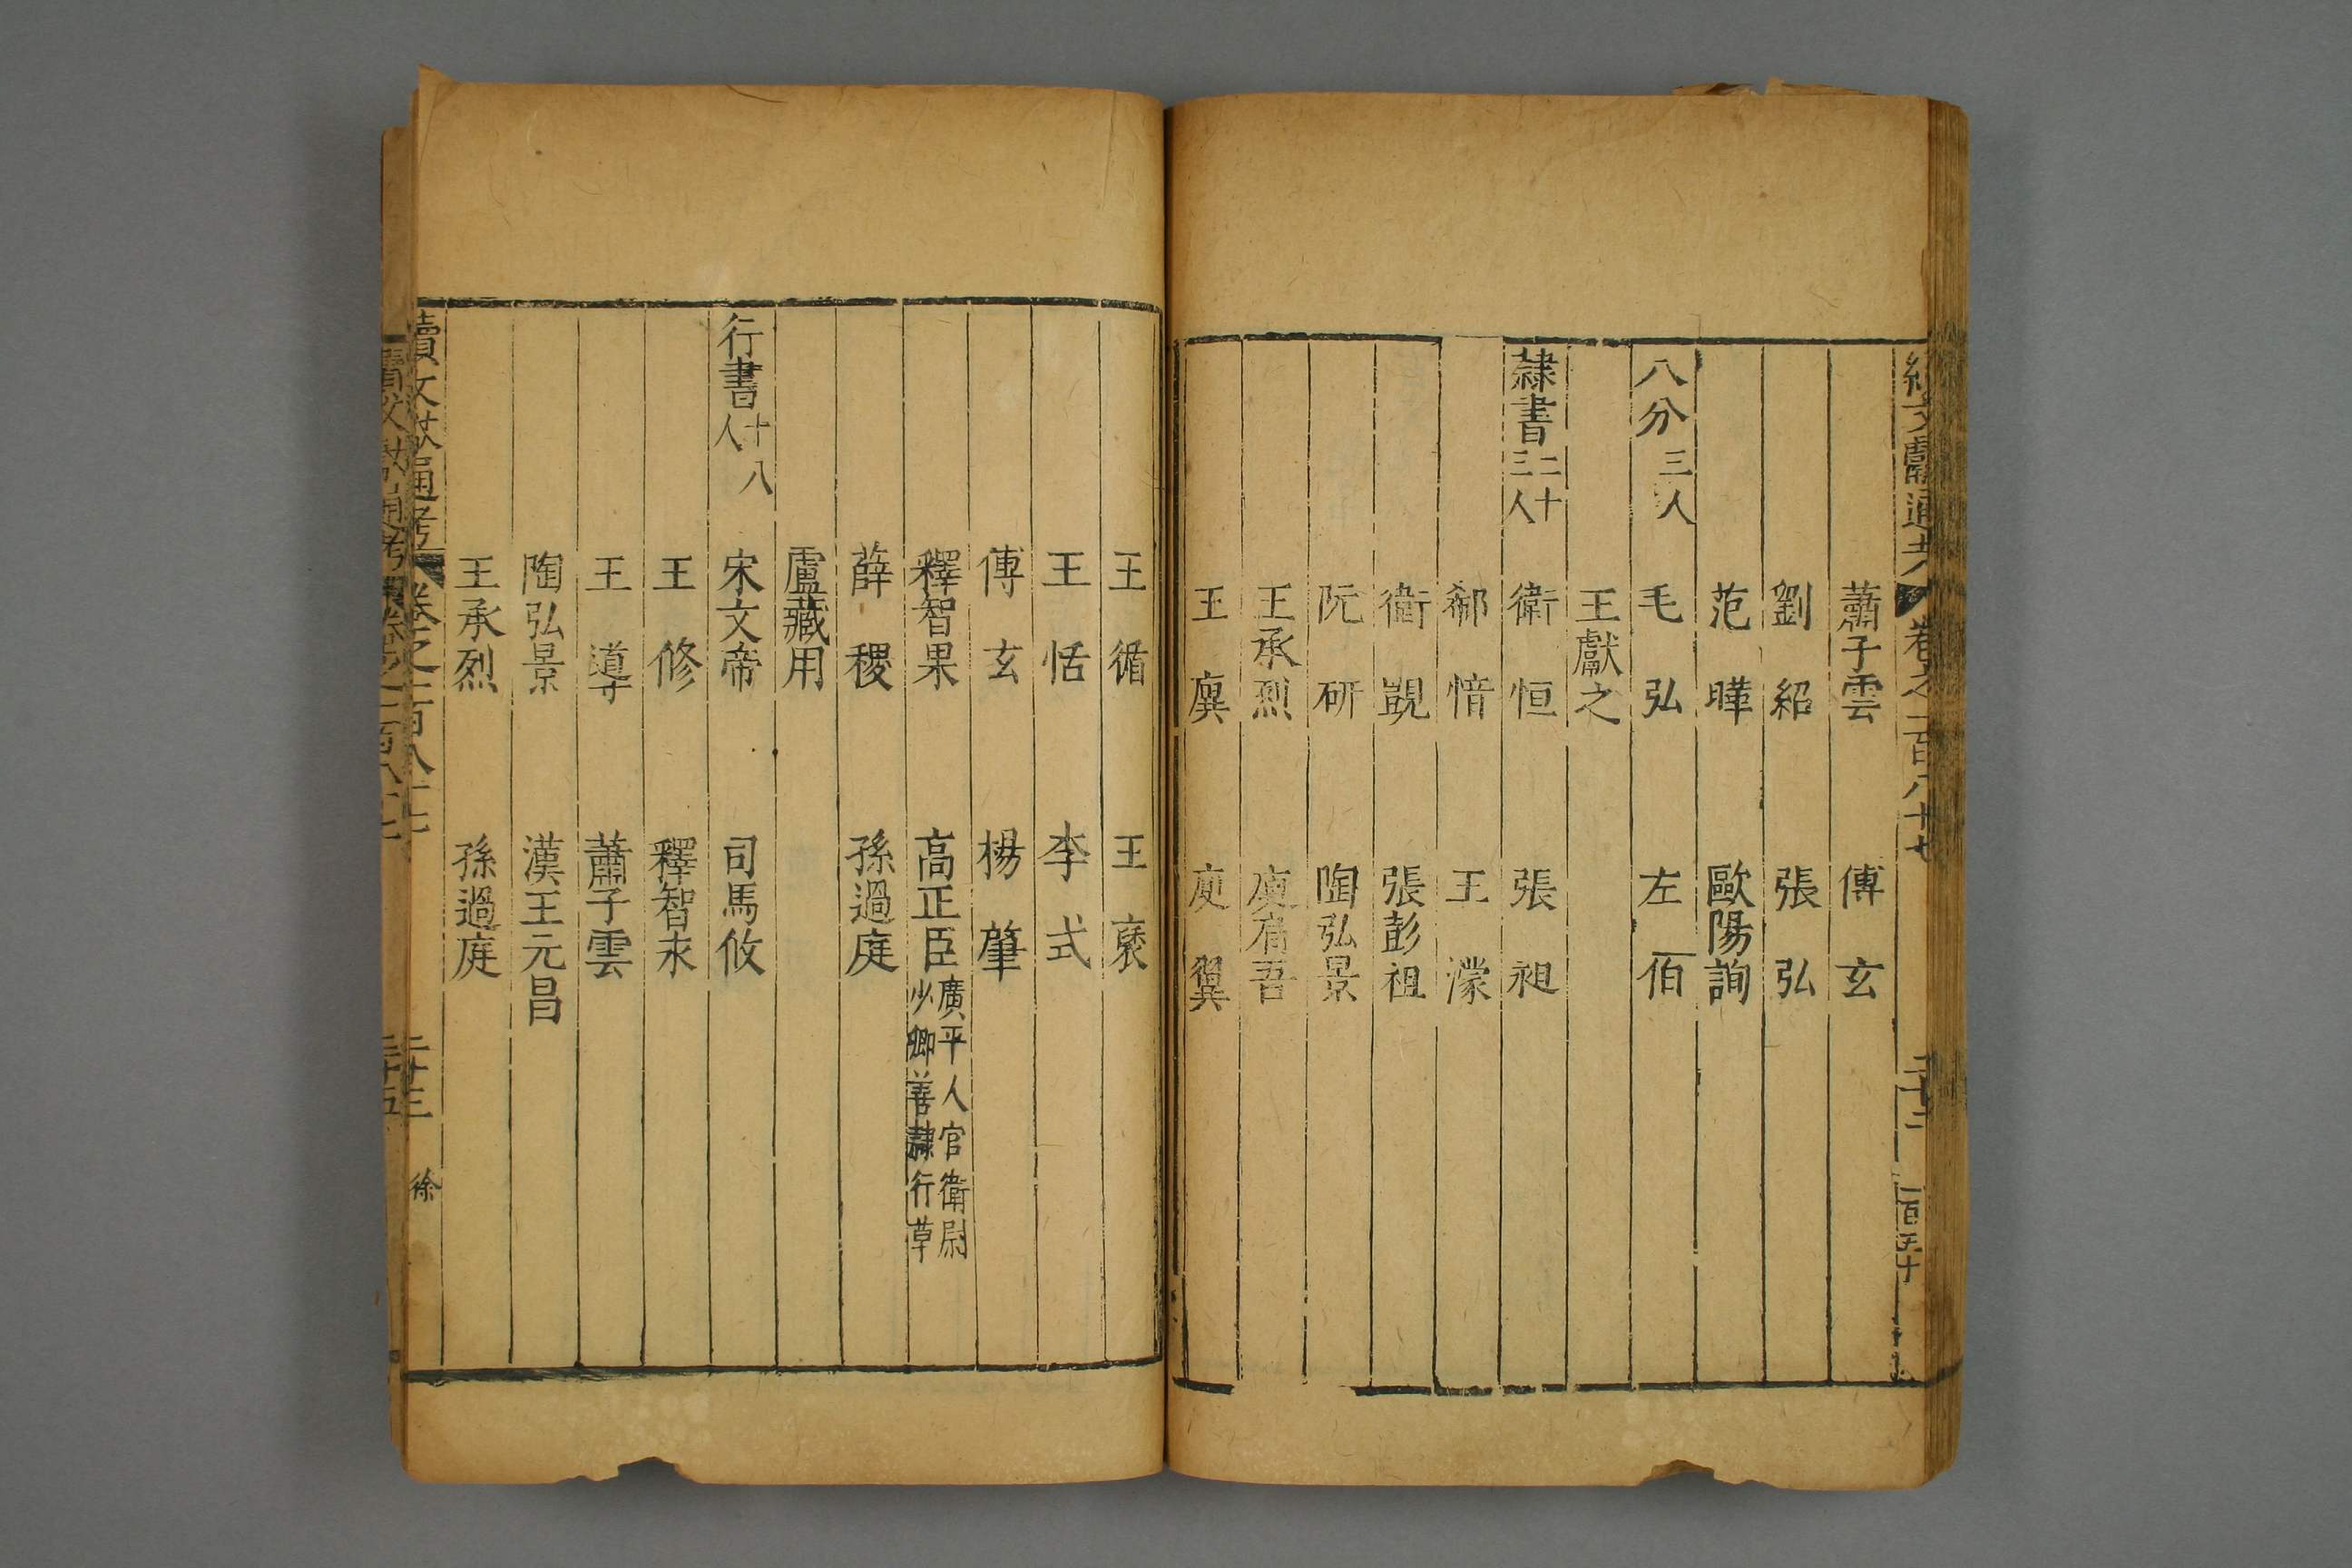 續文獻通考 卷之一百八十七 二十二 一百五十
蕭子雲 傅玄
劉紹 張弘
范曄 歐陽詢
八分三人 毛弘 左伯
王獻之
隸書二十三人 衛恒 張昶
郗愔 王濛
衛覬 張彭祖
阮研 陶弘景
王承烈 庾肩吾
王廙 庾翼
王循 王褒
王恬 李式
傅玄 楊肇
釋智果 高正臣廣平人官衛尉少卿善隸行草
薛稷 孫過庭
盧藏用
行書十八人 宋文帝 司馬攸
王修 釋智永
王導 蕭子雲
陶弘景 漢王元昌
王承烈 孫過庭
續文獻通考 卷之一百八十七 二十三 徐